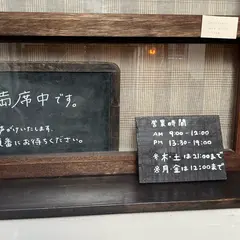 満席中です。
声がけいたします。
順番にお待ちください。
営業時間
AM 9:00-12:00
PM 13:30-19:00
※木・土は21:00まで
※月・金は12:00まで